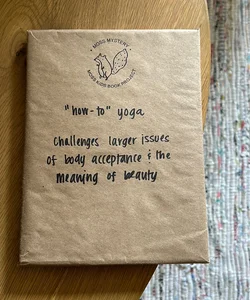 MOBS MYSTERY
MOBS KIDS BOOK PROJECT
"how-to" yoga
challenges larger issues
of body acceptance & the
meaning of beauty